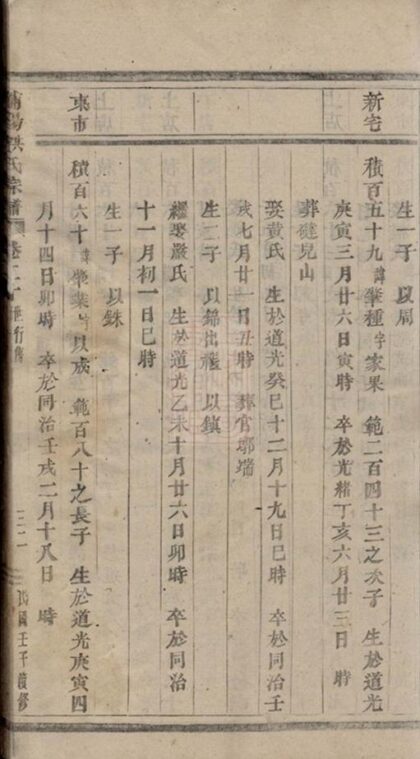 生一子 以周
新宅 積百五十九 諱肇種 字家果 範二百四十三之次子 生於道光
庚寅三月廿六日寅時 卒於光緒丁亥六月廿三日 時
葬健兒山
娶黃氏 生於道光癸巳十二月十九日巳時 卒於同治壬
戌七月廿一日丑時 葬官 端
生二子 以錦出繼 以鎮
繼娶嚴氏 生於道光乙未十月廿六日卯時 卒於同治
十一月初一日巳時
生一子 以銖
東市 積百六十 諱肇業 以成 範百八十之長子 生於道光庚寅四
月十四日卯時 卒於同治壬戌二月十八日 時
陽洪氏宗譜 卷二十 行傳 三二 民國壬午續修